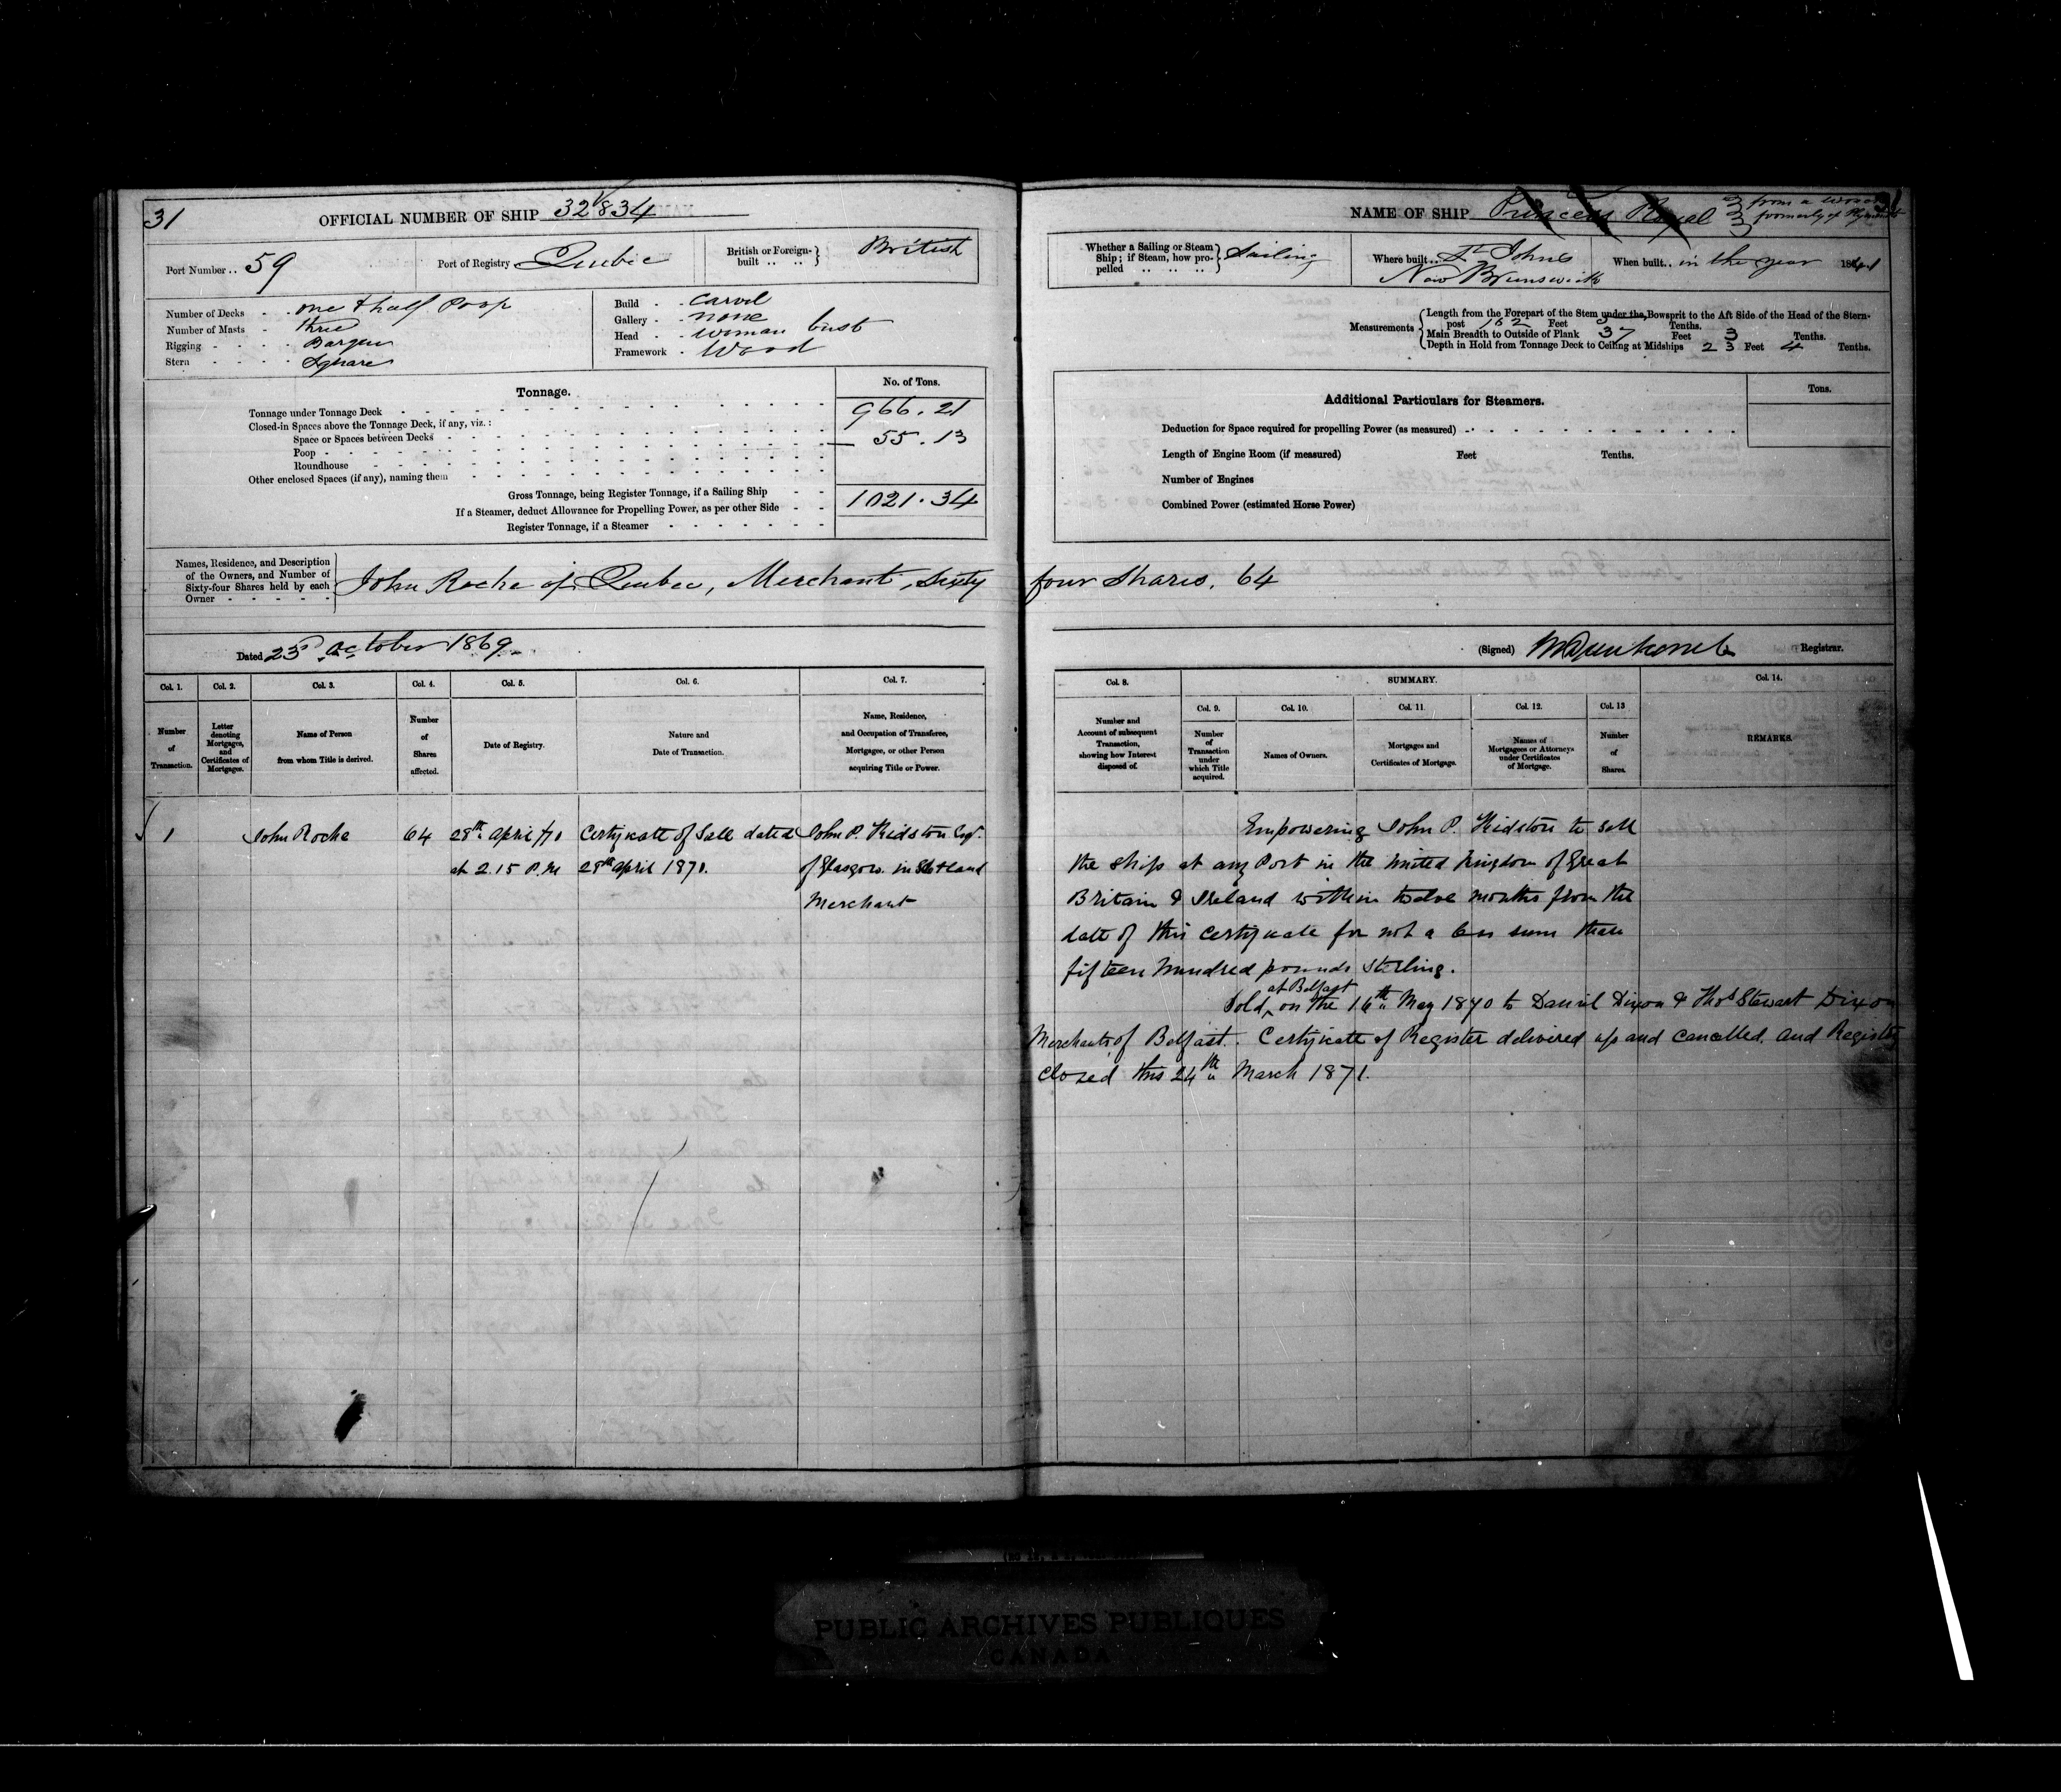 31
OFFICIAL NUMBER OF SHIP 32834
Port Number .. 59
Port of Registry Quebec
British or Foreign-built .. .. British
Number of Decks - . one & half Poop
Number of Masts - three
Rigging - - - - Barque
Stern - - - - Square
Build - . Carvel
Gallery - . none
Head - . woman bust
Framework . Wood
Tonnage.
No. of Tons.
Tonnage under Tonnage Deck 966.21
Closed-in Spaces above the Tonnage Deck, if any, viz. :
Space or Spaces between Decks 55.13
Poop
Roundhouse
Other enclosed Spaces (if any), naming them
Gross Tonnage, being Register Tonnage, if a Sailing Ship 1021.34
If a Steamer, deduct Allowance for Propelling Power, as per other Side
Register Tonnage, if a Steamer
Names, Residence, and Description
of the Owners, and Number of
Sixty-four Shares held by each
Owner
John Roche of Quebec, Merchant, Sixty
Dated 23d October 1869.
Col. 1. Col. 2. Col. 3. Col. 4. Col. 5. Col. 6. Col. 7.
Number of Transaction.
Letter denoting Mortgages, and Certificates of Mortgages.
Name of Person from whom Title is derived.
Number of Shares affected.
Date of Registry.
Nature and Date of Transaction.
Name, Residence, and Occupation of Transferee, Mortgagee, or other Person acquiring Title or Power.
1 John Roche 64 28th April /70 Certificate of Sale dated John P. Kidston Esqr.
at 2.15 P.M 28th April 1870. of Glasgow in Scotland
Merchant
NAME OF SHIP Princess Royal
formerly of Plymouth
31
Whether a Sailing or Steam
Ship; if Steam, how pro-
pelled .. .. .. Sailing
Where built.. St. Johns
New Brunswick
When built.. in the year 1841
Measurements
Length from the Forepart of the Stem under the Bowsprit to the Aft Side of the Head of the Stern-
post 162 Feet 3 Tenths.
Main Breadth to Outside of Plank 37 Feet 3 Tenths.
Depth in Hold from Tonnage Deck to Ceiling at Midships 23 Feet 4 Tenths.
Additional Particulars for Steamers.
Tons.
Deduction for Space required for propelling Power (as measured)
Length of Engine Room (if measured) Feet Tenths.
Number of Engines
Combined Power (estimated Horse Power)
four Shares. 64
(Signed) Registrar.
Col. 8. SUMMARY. Col. 14.
Col. 9. Col. 10. Col. 11. Col. 12. Col. 13
Number and Account of subsequent Transaction, showing how Interest disposed of.
Number of Transaction under which Title acquired.
Names of Owners.
Mortgages and Certificates of Mortgage.
Names of Mortgagees or Attorneys under Certificates of Mortgage.
Number of Shares.
REMARKS.
Empowering John P. Kidston to sell
the ship at any Port in the United Kingdom of Great
Britain & Ireland within twelve months from the
date of this certificate for not a less sum than
fifteen hundred pounds sterling.
at Belfast
Sold ^ on the 16th May 1870 to Daniel Dixon & Thos Stewart Dixon
Merchants of Belfast. Certificate of Register delivered up and cancelled and Registry
closed this 24th March 1871.
PUBLIC ARCHIVES PUBLIQUES
CANADA